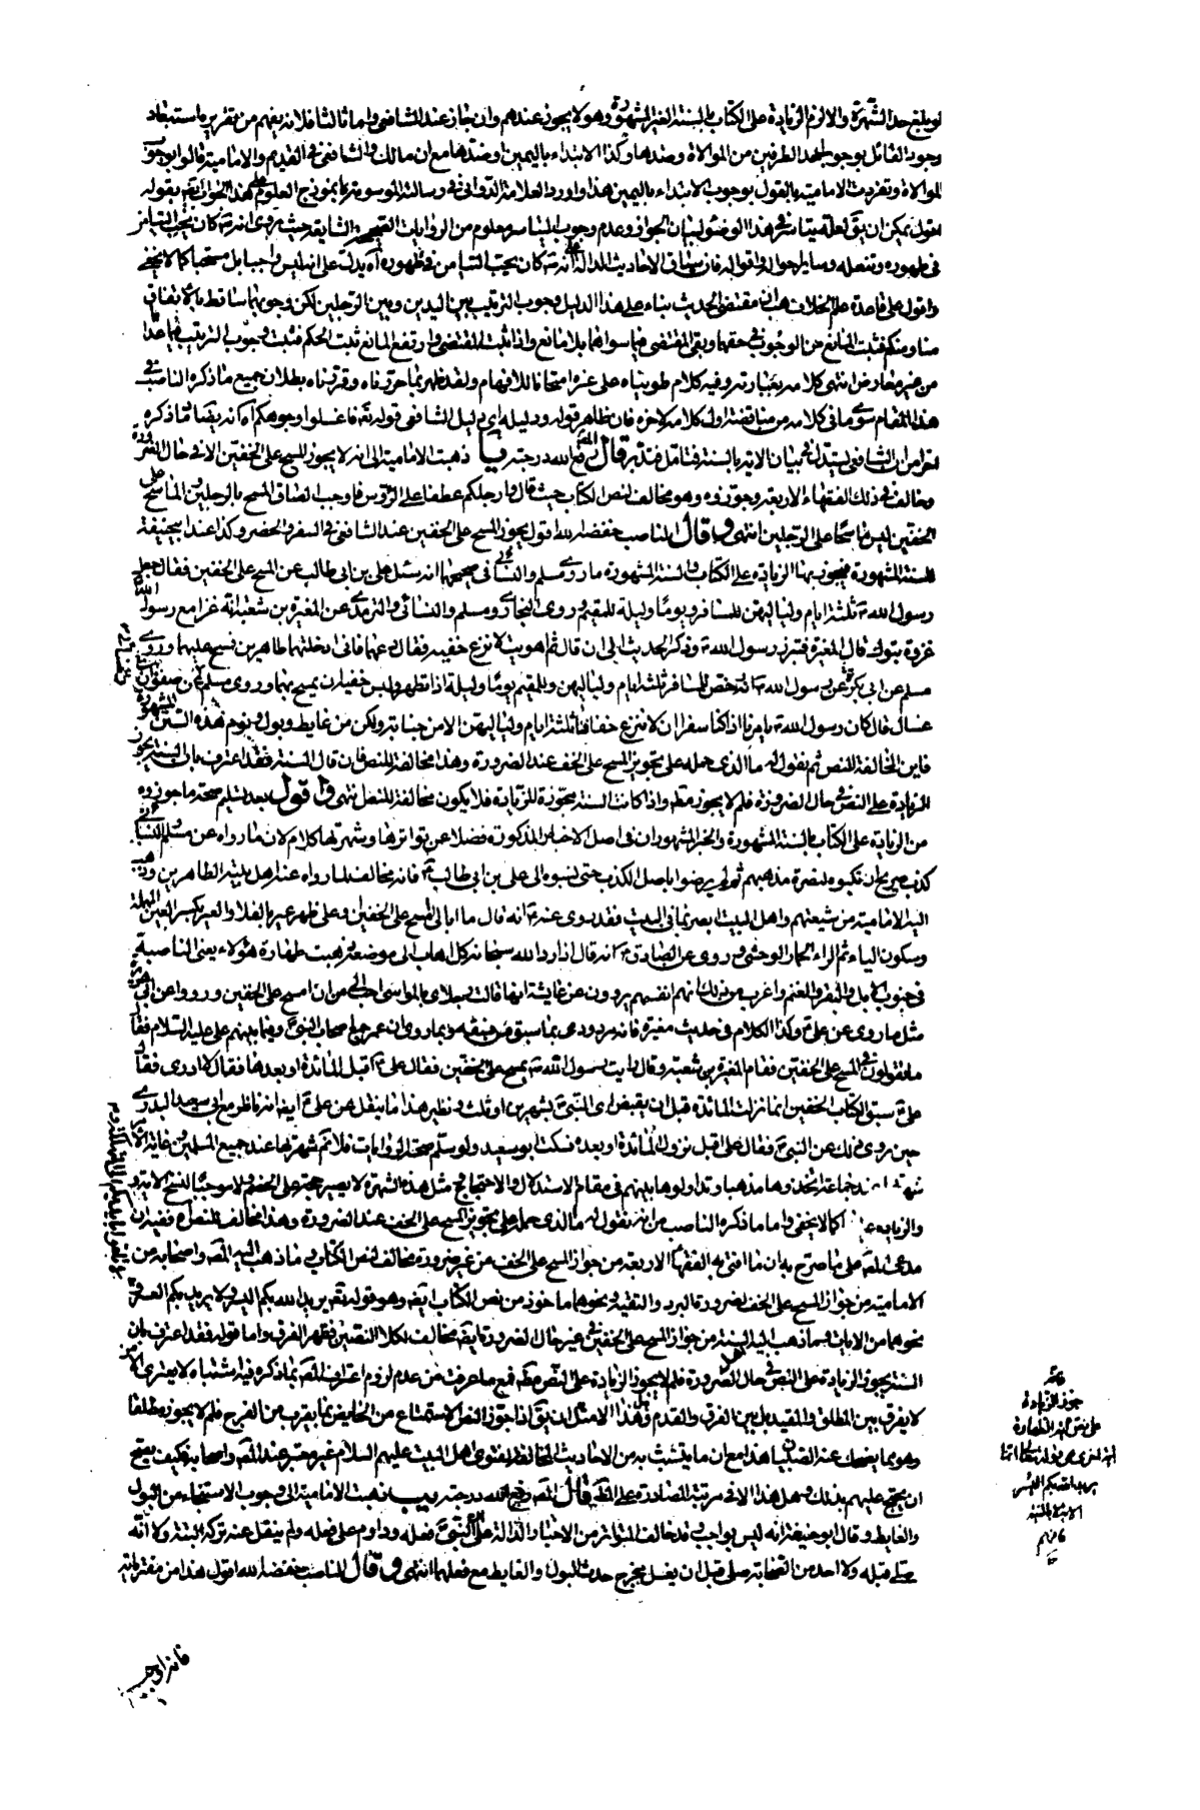 لو بلغ حد الشهرة والا لزم الزيادة على الكتاب بالسنة الغير المشهورة وهو لا يجوز عندهم وان جاز عند الشافعي واما ثالثا فلانه يفهم من تقريره استبعاد
وجود القائل بوجوب احد الطرفين من الموالاة وضدها وكذا الابتداء باليمين وضدها مع ان مالك والشافعي في القديم والامامية قالوا بوجوب
الموالاة وتفردت الامامية بالقول بوجوب الابتداء باليمين هذا واورد العلامة الدواني في رسالته الموسومة بانموذج العلوم على هذا الجواب بقوله
اقول يمكن ان يق لعله تيامن في هذا الوضوء لبيان الجواز وعدم وجوب التياسر معلوم من الروايات الصحيحة السابقة حيث روى انه ص كان يحب التيامن
في طهوره وتنعله وساير احواله واقواله فان سياق الاحاديث الدالة على انه ص كان يحب التيامن في طهوره آه يدل على انه ليس واجبا بل مستحبا كما لا يخفى
واقول على قاعدة علم الخلاف هب ان مقتضى الحديث بناء على هذا الدليل وجوب الترتيب بين اليدين وبين الرجلين لكن وجوبهما ساقط بالاتفاق
منا ومنكم فثبت المانع من الوجوب في حقهما وبقى المقتضى فيما سواهما بلا مانع واذا ثبت المقتضى وارتفع المانع ثبت الحكم فثبت وجوب الترتيب فيما عدا
من غير معارض انتهى كلامه بعبارته وفيه كلام طويناه على غره امتحانا للافهام ولقد ظهر بما حررناه وقررناه بطلان جميع ما ذكره الناصب في
هذا المقام سوى ما في كلامه من مناقضة اول كلامه لاخره فان ظاهر قوله ودليله اي دليل الشافعي قوله تع فاغسلوا وجوهكم آه انه
اخرا من ان الشافعي يستدل في بيان الاية بالسنة فتامل فتدبر قال المص رفع الله درجته يا ذهبت الامامية الى انه لا يجوز المسح على الخفين الا في حال الضرورة
وخالف في ذلك الفقهاء الاربعة وجوزوه وهو مخالف لنص الكتاب حيث قال وارجلكم عطفا على الرؤس فاوجب الصاق المسح بالرجلين والماسح على
الخفين ليس ماسحا على الرجلين انتهى وقال الناصب خفضه الله اقول يجوز المسح على الخفين عند الشافعي في السفر والحضر وكذا عند ابيحنيفة
للسنة المشهورة فيجوز بها الزيادة على الكتاب والسنة المشهورة ما روى مسلم والنسائي في صحيحهما انه سئل علي بن ابي طالب عن المسح على الخفين فقال جعل
رسول الله ص ثلثة ايام ولياليهن للمسافر ويوما وليلة للمقيم وروى البخاري ومسلم والنسائي والترمذي عن المغيرة بن شعبة انه غزا مع رسول الله
غزوة تبوك قال المغيرة فتبرز رسول الله ص وذكر الحديث الى ان قال ثم اهويت لانزع خفيه فقال دعهما فاني ادخلتهما طاهرين فمسح عليهما وروى
مسلم عن ابي بكرة عن رسول الله ص انه رخص للمسافر ثلثة ايام ولياليهن وللمقيم يوما وليلة اذا تطهر ولبس خفيه ان يمسح بهما وروى مسلم عن صفوان بن
عسال قال كان رسول الله ص يامرنا اذا كنا سفرا ان لا ننزع خفافنا ثلثة ايام ولياليهن الا من جنابة ولكن من غايط وبول ونوم فهذه السنن المشهورة
فاين المخالفة للنص ثم نقول له ما الذي حمله على تجويز المسح على الخف عند الضرورة وهذا مخالفة للنص فان قال السنة فقد اعترف بان السنة يجوز
الزيادة على النص في حال الضرورة فلم لا يجوز مط واذا كانت السنة مجوزة للزيادة فلا يكون مخالفة للنص انتهى واقول بعد تسليم صحة ما جوزوه
من الزيادة على الكتاب بالسنة المشهورة والخبر المشهور ان في اصل الاخبار المذكورة فضلا عن تواترها وشهرتها كلام لان ما رواه عن مسلم والنسائي
كذب صريح ارتكبوه لنصرة مذهبهم ثم لم يرضوا باصل الكذب حتى نسبوه الى علي بن ابي طالب ع فانه مخالف لما رواه عنه اهل بيته الطاهرين وذهب
اليه الامامية من شيعتهم واهل البيت ابصر بما في البيت فقد روى عنه ع انه قال ما ابالي امسح على الخفين او على ظهر عير بالفلا والعير بكسر العين المهملة
وسكون الياء ثم الراء الحمار الوحشي وروى عن الصادق ع انه قال اذا رد الله سبحانه كل اهاب الى موضعه ذهبت طهارة هؤلاء يعني الناصبة
في جنوب الابل والبقر والغنم واغرب من ذلك انهم انفسهم يروون عن عايشة انها قالت لان رجلاي بالمواسي احب الي من ان امسح على الخفين ورووا عن ابي هريرة
مثل ما روى عن علي ع وكذا الكلام في حديث مغيرة فانه مردود بما سبق من فسقه وبما روى ان عمر جمع اصحاب النبي ص وفيما بينهم علي عليه السلام فقال
ما تقولون في المسح على الخفين فقام المغيرة بن شعبة وقال رايت رسول الله ص يمسح على الخفين فقال علي ع اقبل المائدة او بعدها فقال لا ادري فقال
علي ع سبق الكتاب الخفين انما نزلت المائدة قبل ان يقبض اى النبي ص بشهرين او ثلث ونظير هذا ما ينقل عن علي ع ايضا انه ناظر مع ابي سعيد البدري
حين روى ذلك عن النبي ص فقال علي اقبل نزول المائدة او بعده فسكت ابو سعيد ولو سلم صحة الروايات فلا نم شهرتها عند جميع المسلمين وغاية الامر
شهرتها عند جماعة اتخذوها مذهبا وتداولوها بينهم في مقام الاستدلال والاحتجاج مثل هذه الشهرة لا يصير حجة على الخصم ولا موجبا لنسخ الاية
والزيادة عليها كما لا يخفى واما ما ذكره الناصب من انه نقول له ما الذي حمله على تجويز المسح على الخف عند الضرورة وهذا مخالف للنص آه ففيه ان
مدعى المص على ما صرح به ان ما افتى به الفقهاء الاربعة من جواز المسح على الخف من غير ضرورة مخالف لنص الكتاب وما ذهب اليه المص واصحابه من
الامامية من جواز المسح على الخف لضرورة كالبرد والتقية ونحوهما ماخوذ من نص الكتاب ايضا وهو قوله تع يريد الله بكم اليسر ولا يريد بكم العسر و
نحوهما من الايات فما ذهب اليه السنة من جواز المسح على الخفين في غير حال الضرورة ايضا مخالف لكلا النصين فظهر الفرق واما قوله فقد اعترف بان
السنة يجوز الزيادة على النص في حال الضرورة فلم لا يجوز الزيادة على النص مط فمع ما عرفت من عدم لزوم اعتراف المص بما ذكره فيه اشتباه لا يعتري الا من
لا يفرق بين المطلق والمقيد بل بين الفرق والقدم وهل هذا الا مثل ان يق اذا جوز النص الاستمتاع من الحايض بما يقرب من الفرج فلم لا يجوز مطلقا
وهو مما يضحك عنه الصبيان هذا مع ان ما يتشبث به من الاحاديث المخالفة لفتوى اهل البيت عليهم السلام غير معتبر عند المص واصحابه فكيف يصح
ان يحتج عليهم بذلك وهل هذا الا في مرتبة المصادرة على المط قال المص رفع الله درجته يب ذهبت الامامية الى وجوب الاستنجاء من البول
والغايط وقال ابو حنيفة انه ليس بواجب وقد خالف المتواتر من الاخبار الدالة على ان النبي ص فعله وداوم على فعله ولم ينقل عنه تركه البتة ولا انه
صلى قبله ولا احد من الصحابة صلى قبل ان يغسل مخرج حدث البول والغايط مع فعلهما انتهى وقال الناصب خفضه الله اقول هذا من مفترياته
فان ابا حنيفة